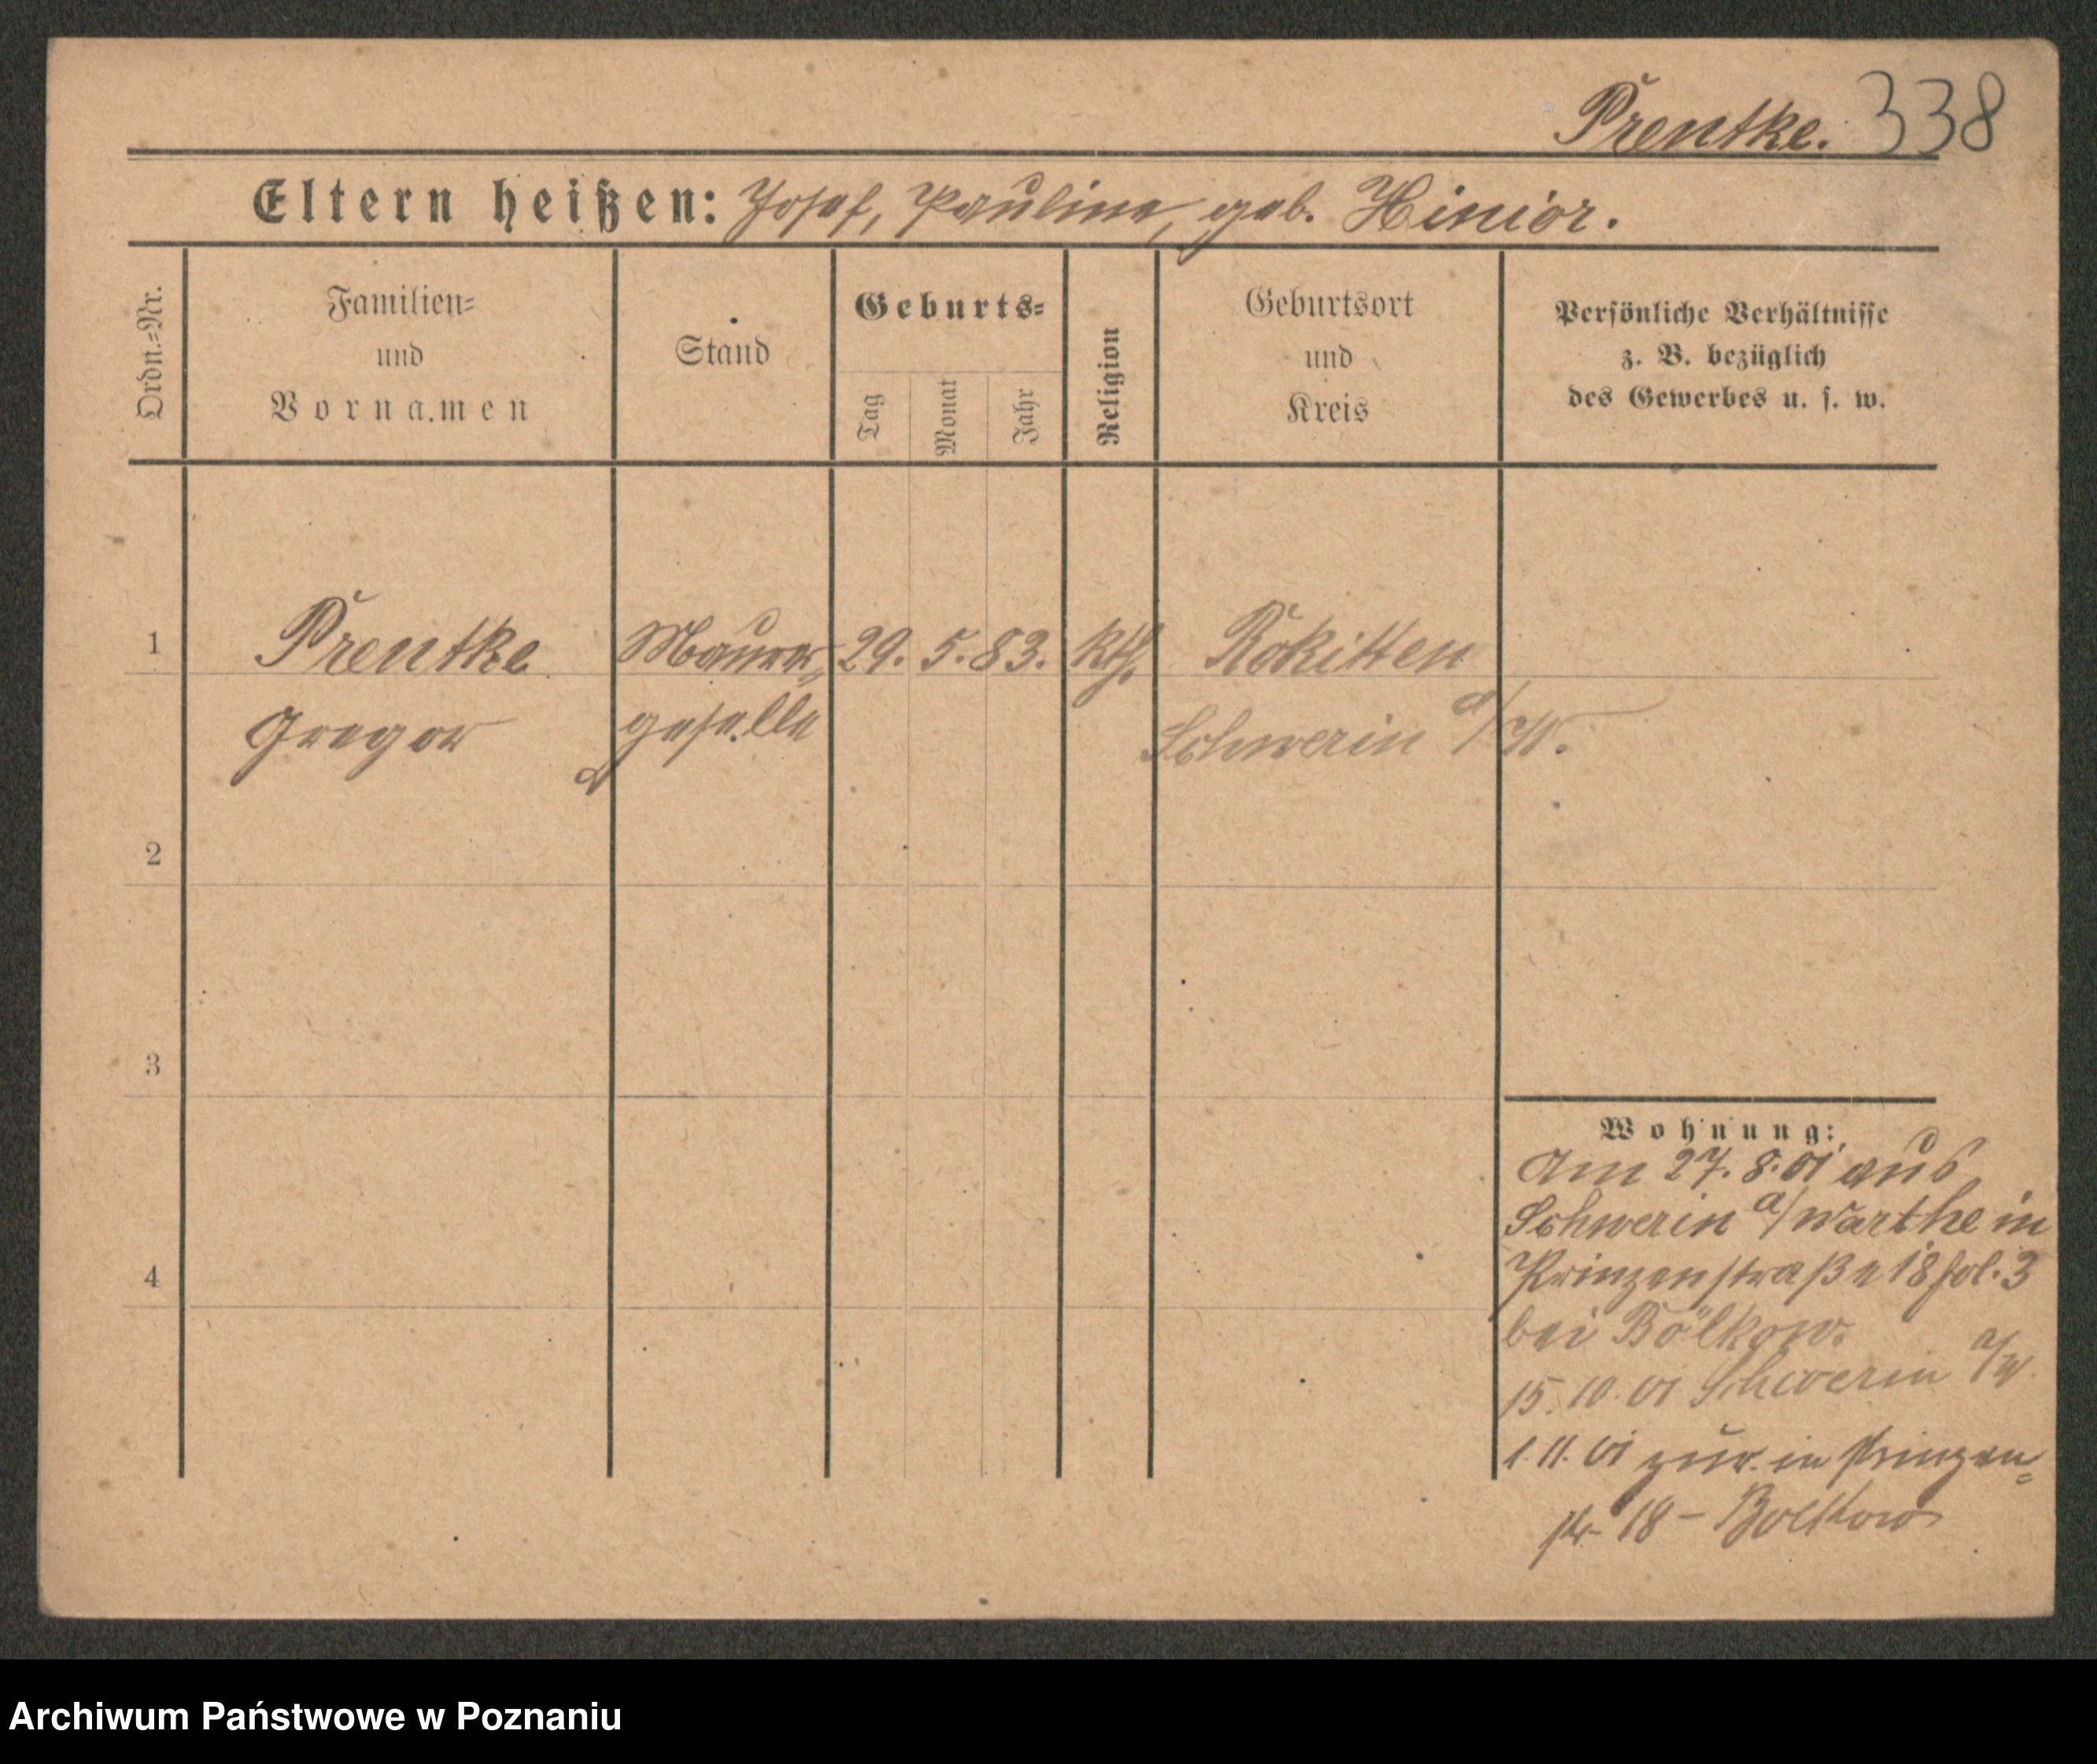 Prentke. 338
Eltern heißen: Josef, Pauline, geb. Hinior.
Ordn.-Nr.
Familien-
und
Vornamen
Stand
Geburts-
Tag
Monat
Jahr
Religion
Geburtsort
und
Kreis
Persönliche Verhältnisse
z. B. bezüglich
des Gewerbes u. s. w.
1 Prentke Maurer- 29. 5. 83. kth. Rokitten
Gregor geselle Schwerin a/W.
2
3
4
Wohnung:
Am 27. 8. 01 aus
Schwerin a/Warthe in
Prinzenstraße 18 fol. 3
bei Bölkow.
15. 10. 01 Schwerin a/W.
1. 11. 01 zur. in Prinzen-
str 18 - Bolkow
Archiwum Państwowe w Poznaniu